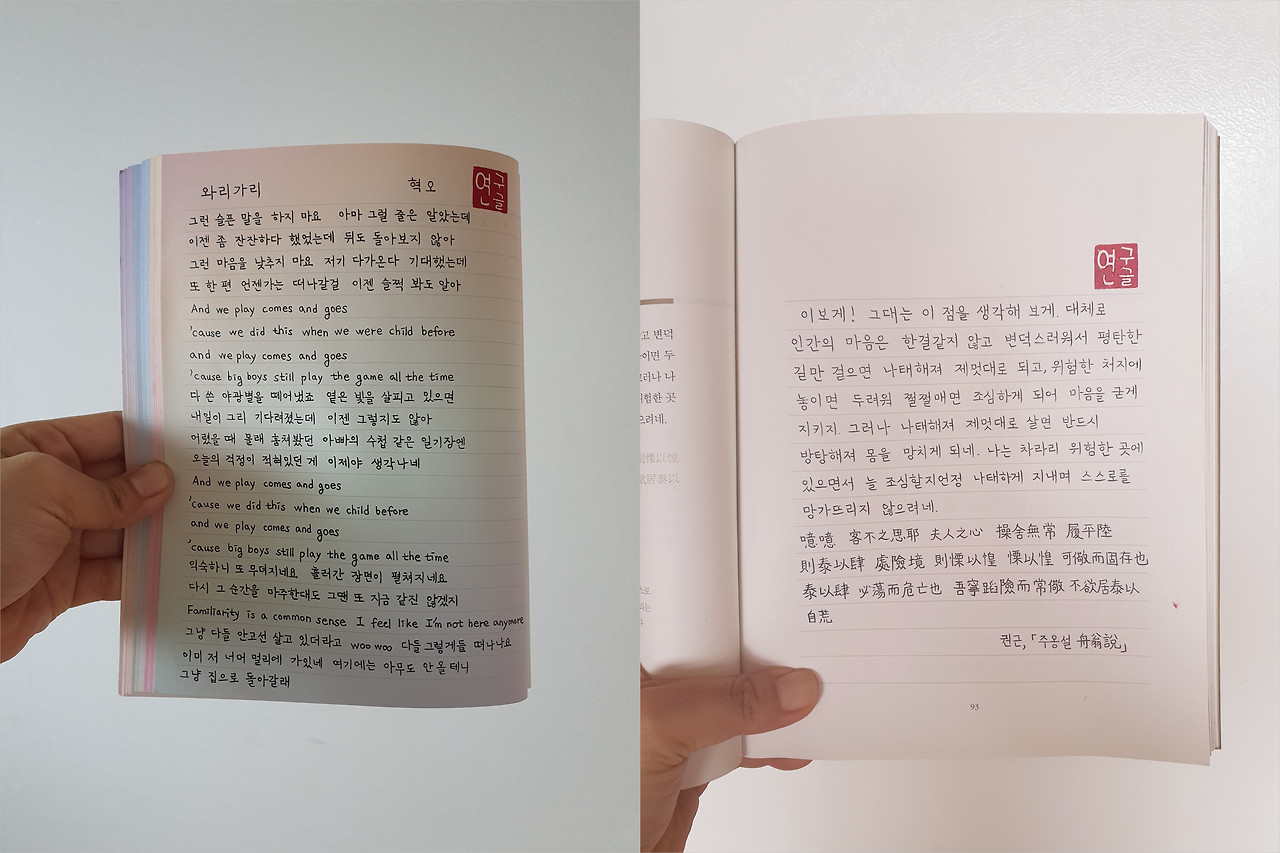 와리가리 혁오
연구글
그런 슬픈 말을 하지 마요 아마 그럴 줄은 알았는데
이젠 좀 잔잔하다 했었는데 뒤도 돌아보지 않아
그런 마음을 낮추지 마요 저기 다가온다 기대했는데
또 한 편 언젠가는 떠나갈걸 이젠 슬쩍 봐도 알아
And we play comes and goes
'cause we did this when we were child before
and we play comes and goes
'cause big boys still play the game all the time
다 쓴 야광별을 떼어냈죠 옅은 빛을 살피고 있으면
내일이 그리 기다려졌는데 이젠 그렇지도 않아
어렸을 때 몰래 훔쳐봤던 아빠의 수첩 같은 일기장엔
오늘의 걱정이 적혀있던 게 이제야 생각나네
And we play comes and goes
'cause we did this when we child before
and we play comes and goes
'cause big boys still play the game all the time
익숙하니 또 무뎌지네요 흘러간 장면이 펼쳐지네요
다시 그 순간을 마주한대도 그땐 또 지금 같진 않겠지
Familiarity is a common sense I feel like I'm not here anymore
그냥 다들 안고선 살고 있더라고 woo woo 다들 그렇게들 떠나나요
이미 저 너머 멀리에 가있네 여기에는 아무도 안 올 테니
그냥 집으로 돌아갈래
고 변덕
이면 두
러나 나
험한 곳
으려네.
연구글
이보게! 그대는 이 점을 생각해 보게. 대체로
인간의 마음은 한결같지 않고 변덕스러워서 평탄한
길만 걸으면 나태해져 제멋대로 되고, 위험한 처지에
놓이면 두려워 쩔쩔매면 조심하게 되어 마음을 굳게
지키지. 그러나 나태해져 제멋대로 살면 반드시
방탕해져 몸을 망치게 되네. 나는 차라리 위험한 곳에
있으면서 늘 조심할지언정 나태하게 지내며 스스로를
망가뜨리지 않으려네.
噫噫 客不之思耶 夫人之心 操舍無常 履平陸
則泰以肆 處險境 則慄以惶 慄以惶 可儆而固存也
泰以肆 必蕩而危亡也 吾寧蹈險而常儆 不欲居泰以
自荒
권근, 「주옹설 舟翁說」
93